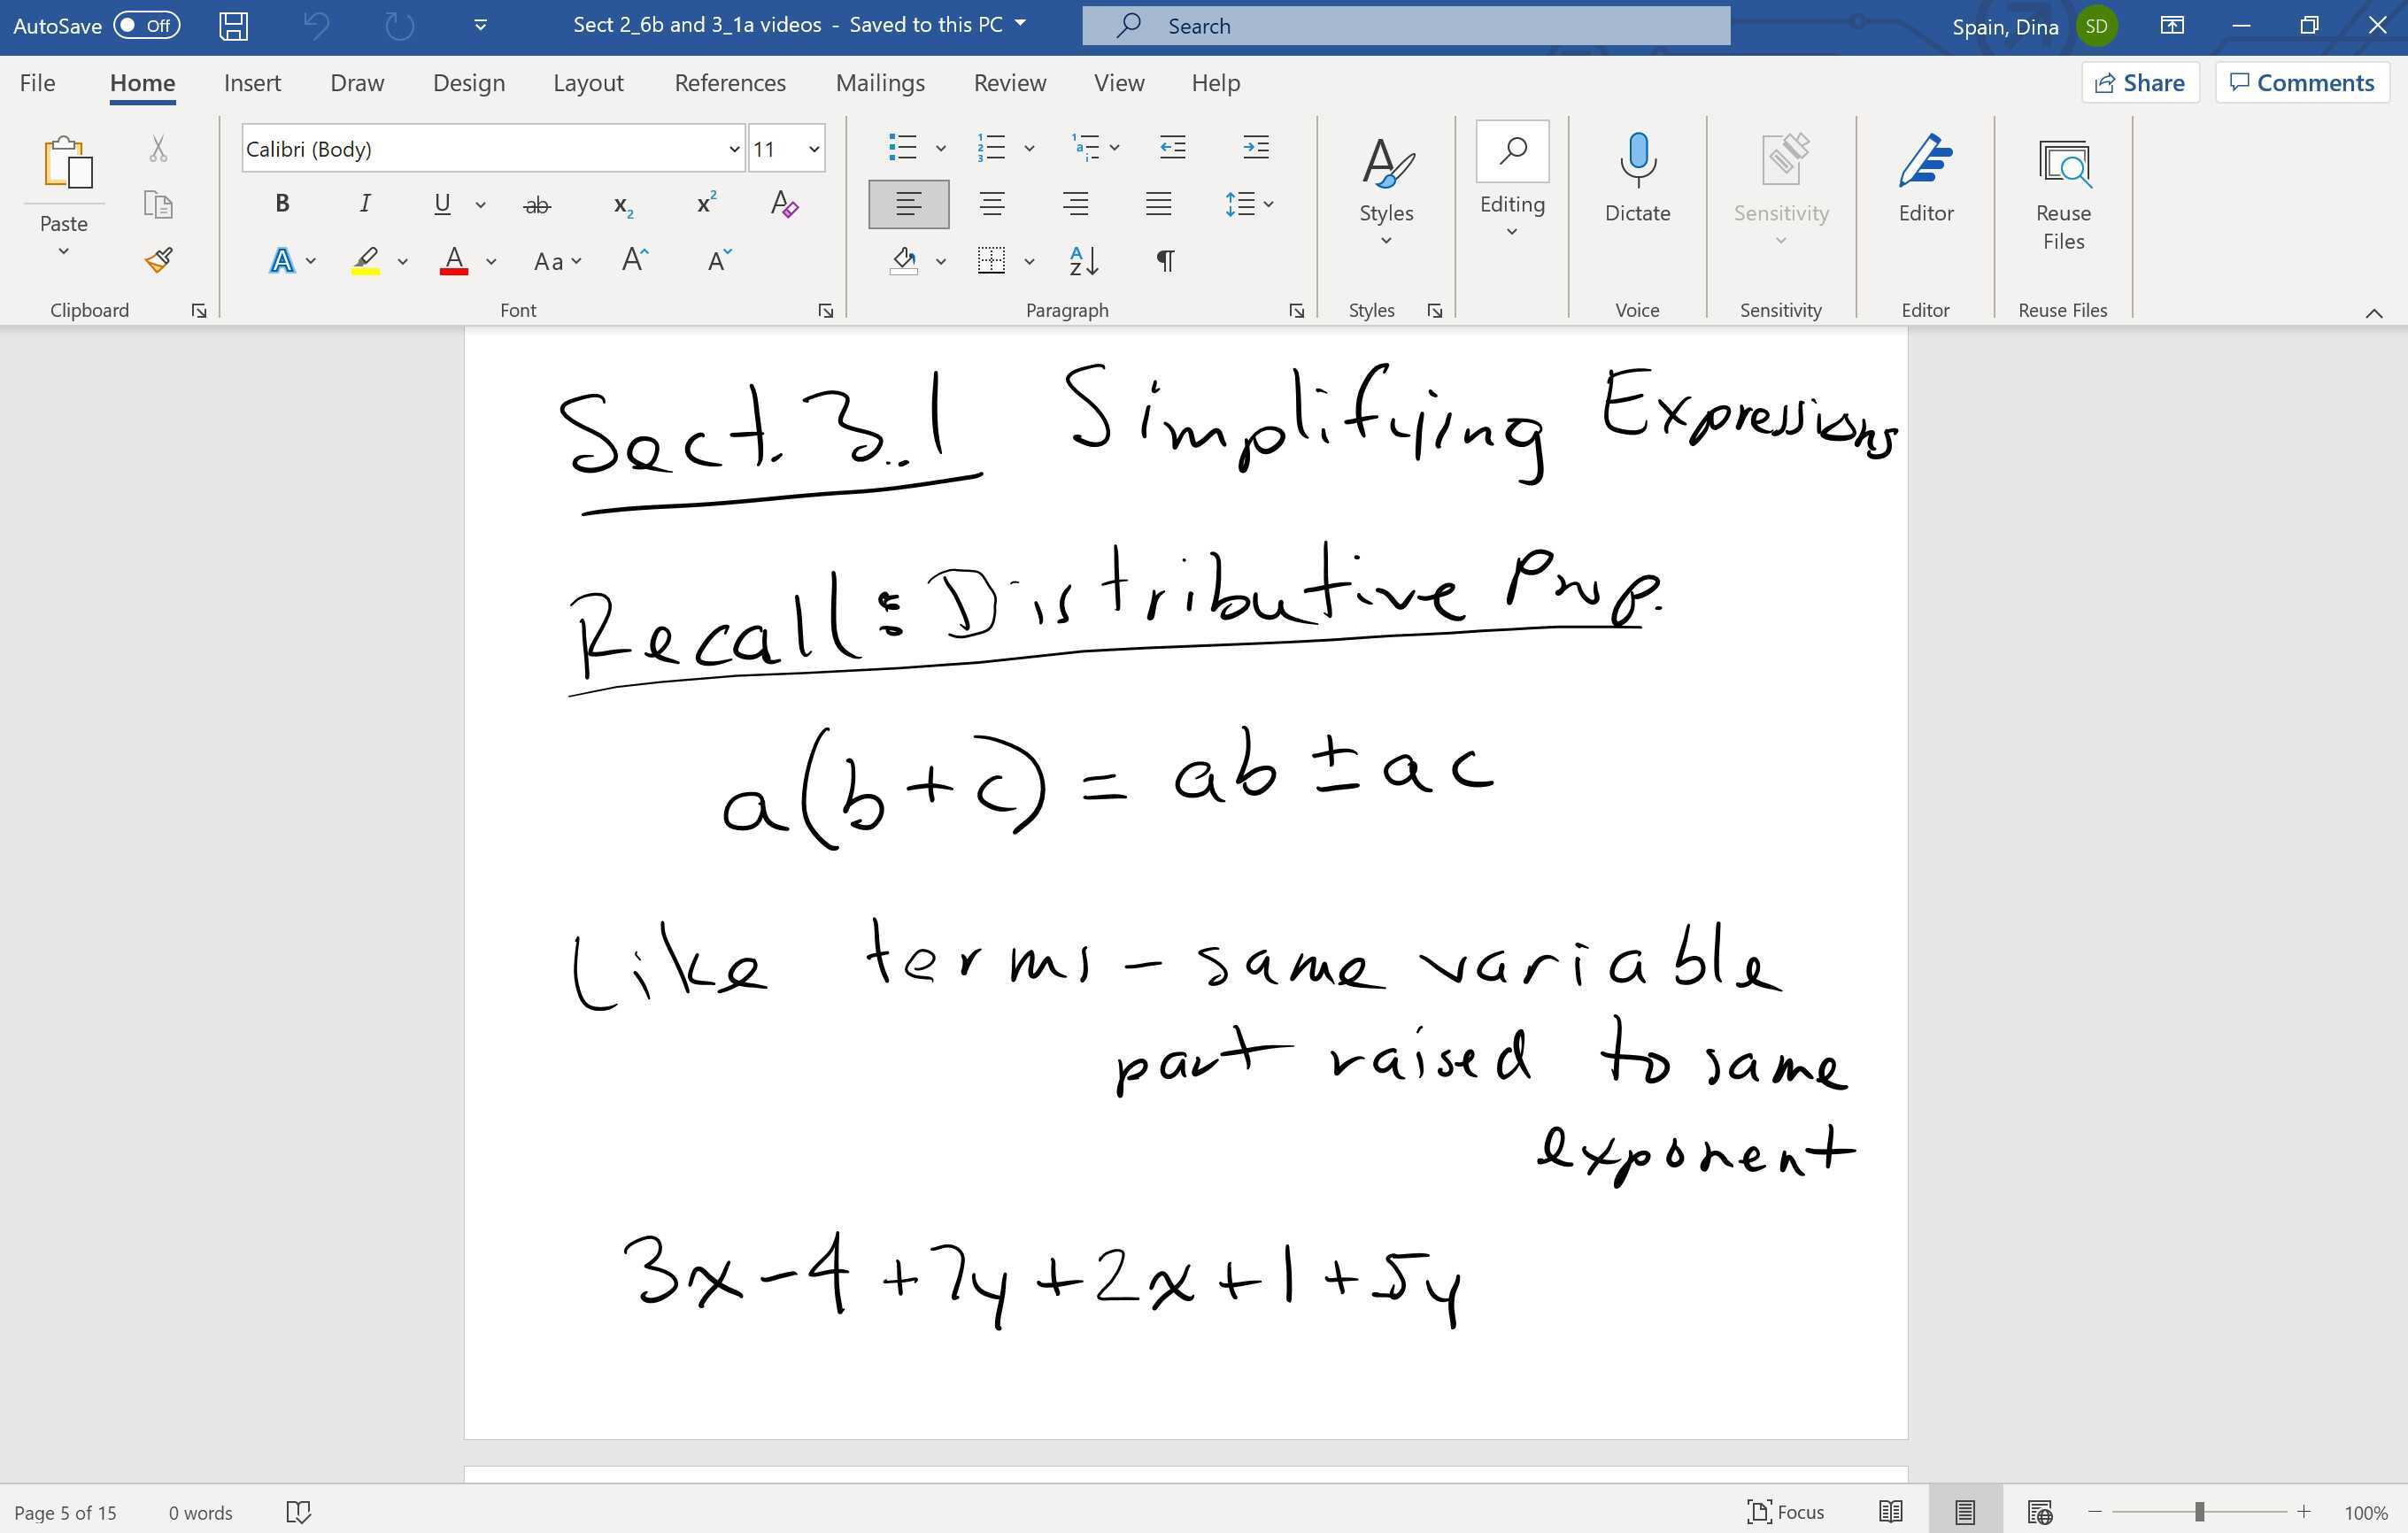 AutoSave Off Sect 2_6b and 3_1a videos - Saved to this PC Search Spain, Dina SD
File Home Insert Draw Design Layout References Mailings Review View Help Share Comments
Calibri (Body) 11
Paste
Styles Editing Dictate Sensitivity Editor Reuse Files
Clipboard Font Paragraph Styles Voice Sensitivity Editor Reuse Files
Sect. 3.1 Simplifying Expressions
Recall: Distributive Prop.
a(b+c) = ab ± ac
Like terms - same variable
part raised to same
exponent
3x-4+7y+2x+1+5y
Page 5 of 15 0 words Focus 100%